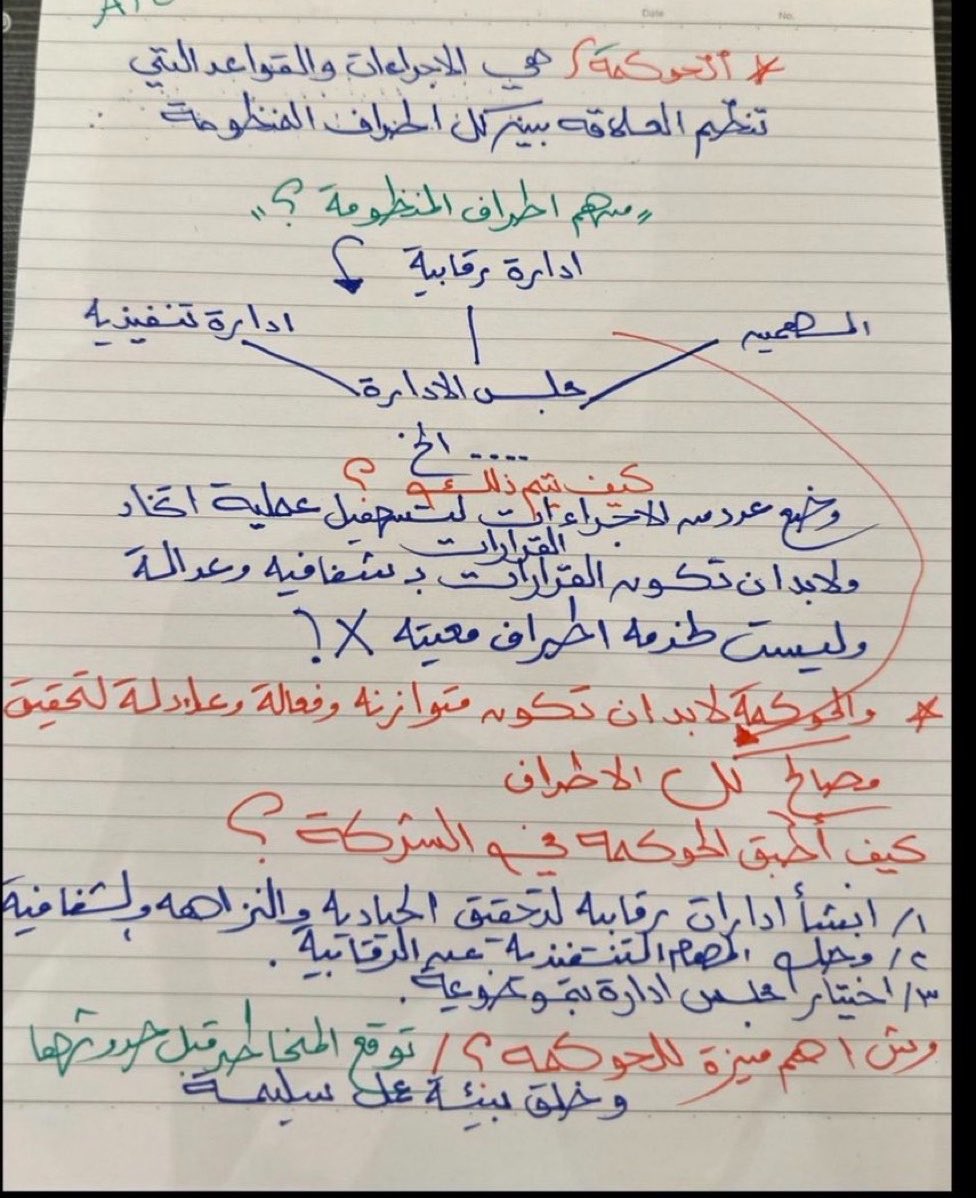 * الحوكمة / هي الاجراءات والقواعد التي
تنظيم العلاقه بين كل اطراف المنظومة
"من هم اطراف المنظومة ؟"
ادارة رقابية
ادارة تنفيذيه
مجلس الادارة
.... الخ
كيف تتم ذلك ؟
وضع عدد من الاجراءات لتسهيل عملية اتخاذ
القرارات
ولابد ان تكون القرارات بشفافيه وعدالة
وليست لخدمه اطراف معينه X !
* والحوكمة لابد ان تكون متوازنه وفعالة وعادلة لتحقيق
مصالح كل الاطراف
كيف أطبق الحوكمه في الشركة ؟
١/ انشأ ادارات رقابيه لتحقيق الحياديه والنزاهه والشفافية
٢/ المهام التنفيذية عن الرقابية .
٣/ اختيار مجلس ادارة بموضوعية .
وش اهم ميزة للحوكمه ؟ / توقع المخاطر قبل حدوثها
وخلق بيئة عمل سليمة